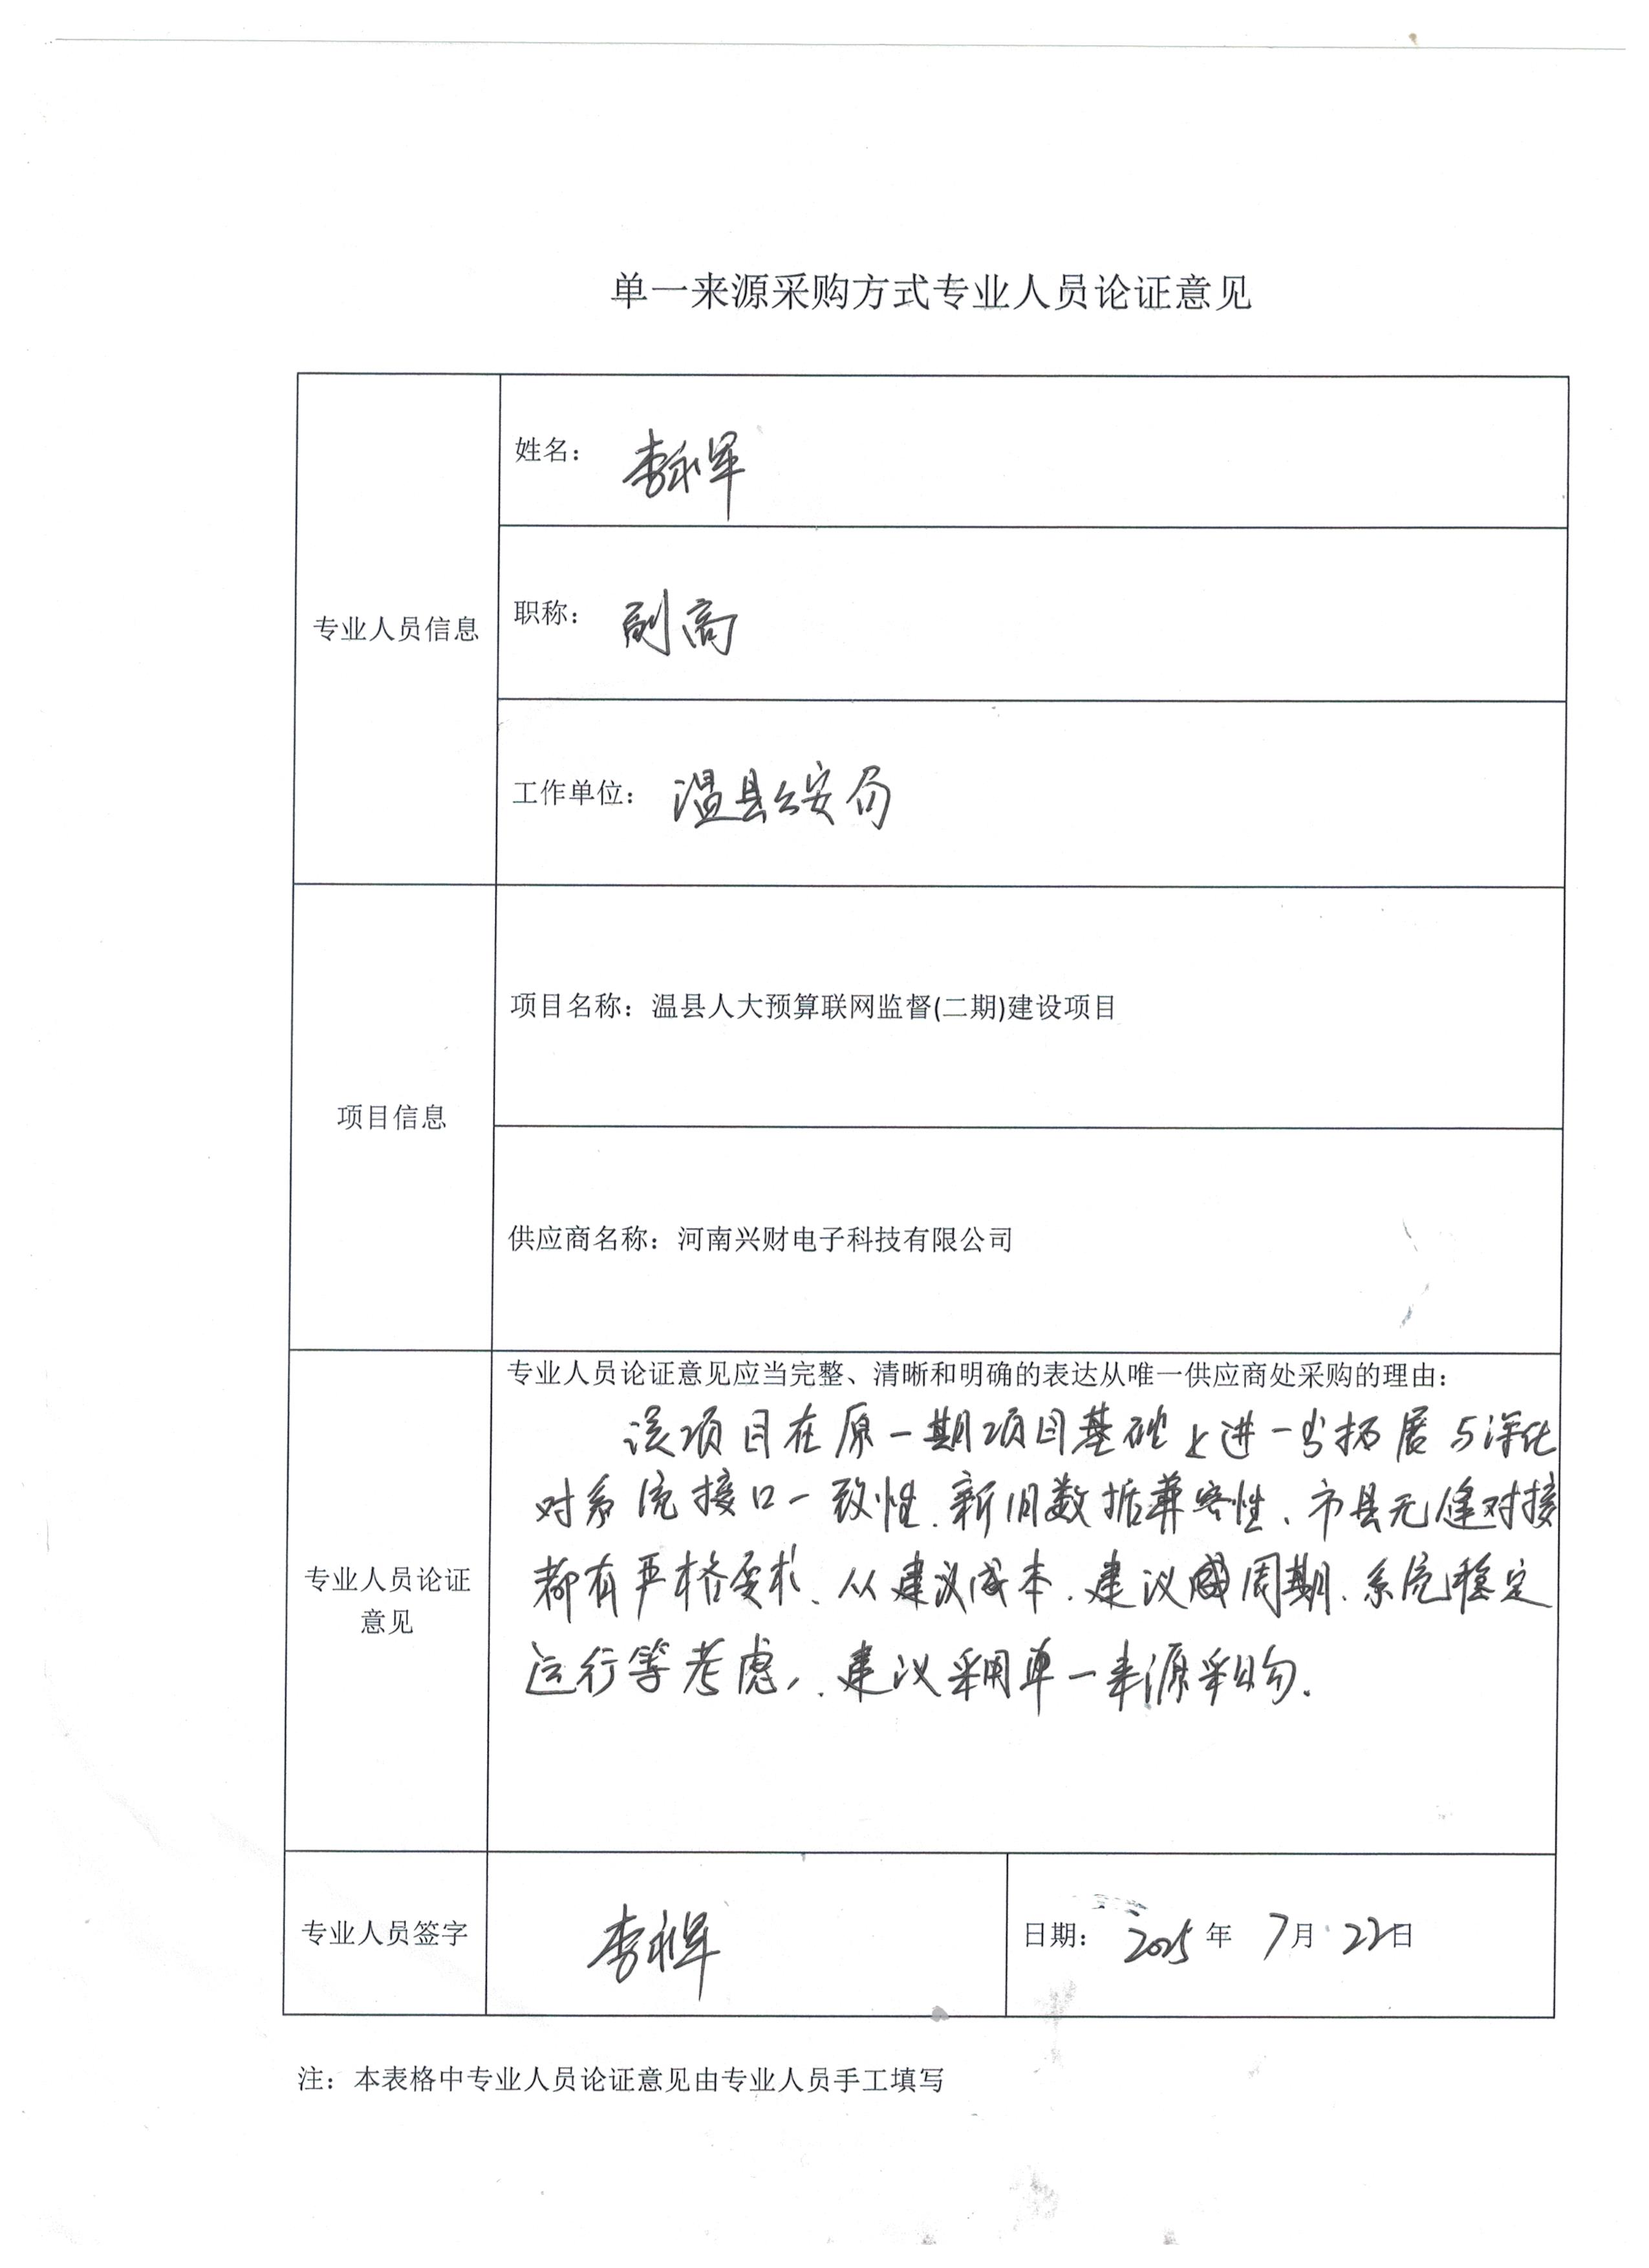 单一来源采购方式专业人员论证意见
专业人员信息
姓名：李永军
职称：副高
工作单位：温县公安局
项目信息
项目名称：温县人大预算联网监督(二期)建设项目
供应商名称：河南兴财电子科技有限公司
专业人员论证
意见
专业人员论证意见应当完整、清晰和明确的表达从唯一供应商处采购的理由：
该项目在原一期项目基础上进一步拓展与深化
对系统接口一致性、新旧数据兼容性、市县无缝对接
都有严格要求、从建议成本、建议周期、系统稳定
运行等考虑，建议采用单一来源采购.
专业人员签字
李永军
日期：2025年7月22日
注：本表格中专业人员论证意见由专业人员手工填写